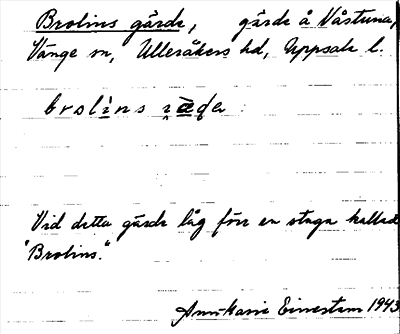 Brolins gärde, gärde å Våstuna,
Vänge sn, Ulleråkers hd, Uppsala l.
Vid detta gärde låg förr en stuga kallad
"Brolins."
Ann-Marie Einestam 1943